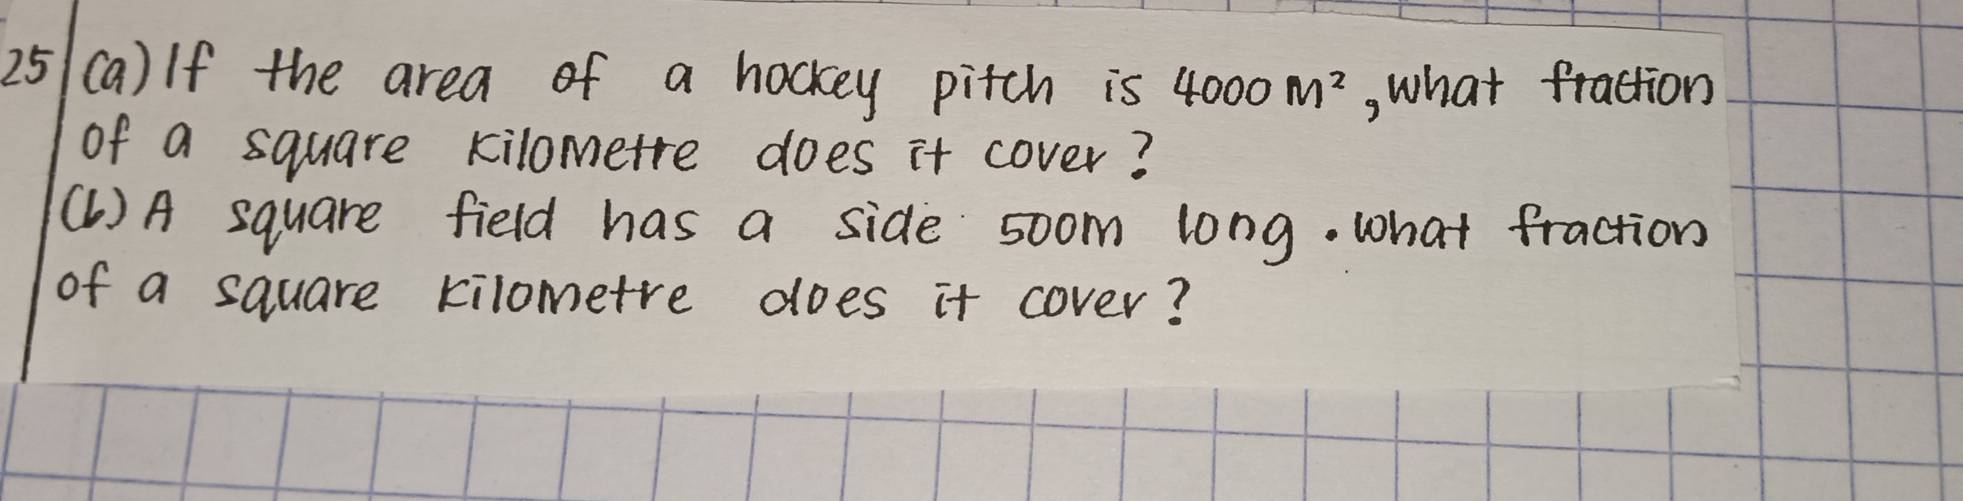 25 (a) If the area of a hockey pitch is 4000 m², what fraction
of a square kilometre does it cover?
(b) A square field has a side 500m long. what fraction
of a square kilometre does it cover?